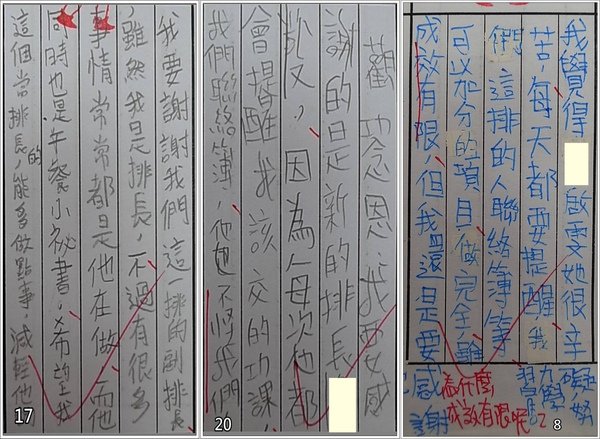 我要謝謝我們這一排的副排長
，雖然我是排長，不過有很多
事情常常都是他在做，而他
同時也是午餐小祕書，希望我
這個當排長的能多做點事，減輕他
17
觀功念恩：我要感
謝的是新的排長
因為每次他都
會提醒我該交的功課，
我們聯絡簿，他也不 我們，
20
我覺得 啟雯她很辛
苦，每天都要提醒我
們這排的人聯絡簿等
可以加分的項目做完全，雖
成效有限，但我還是要
感謝
為什麼
成效有限呢？
8